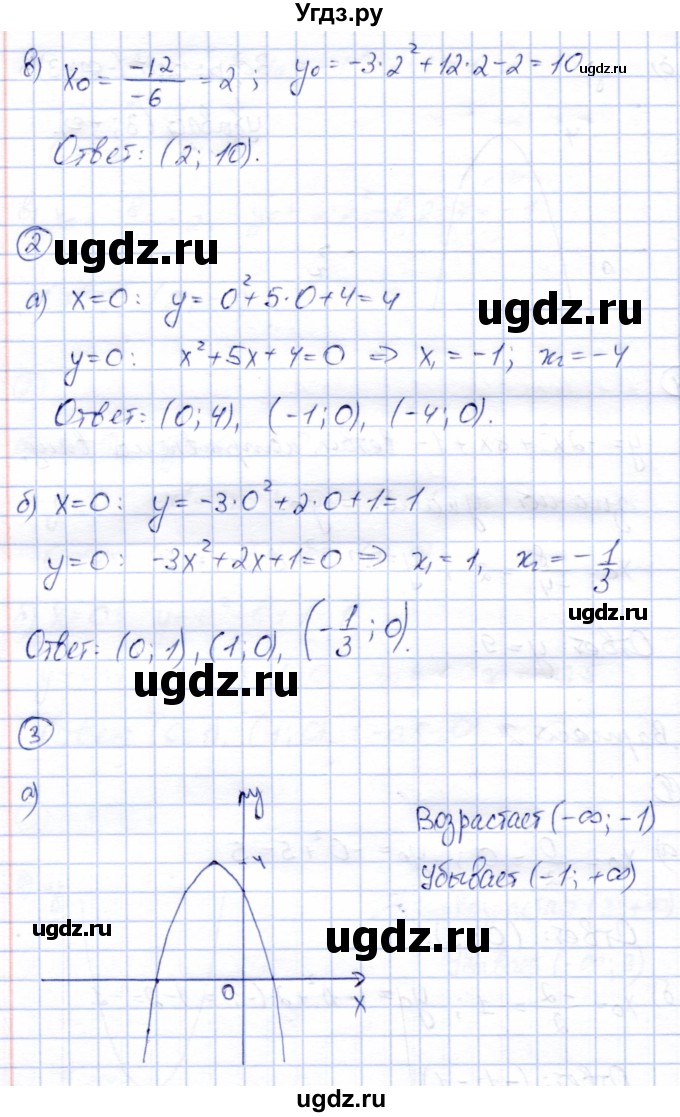 Угдз.ру
в) x₀ = -12/-6 = 2 ; y₀ = -3·2² + 12·2 - 2 = 10
ugdz.ru
Ответ: (2; 10).
2
ugdz.ru
а) x=0: y= 0²+5·0+4=4
ugdz.ru
y=0: x²+5x+4=0 ⇒ x₁=-1; x₂=-4
Ответ: (0;4), (-1;0), (-4;0).
б) x=0: y=-3·0²+2·0+1=1
y=0: -3x²+2x+1=0 ⇒ x₁=1, x₂=-1/3
ugdz.ru
Ответ: (0;1), (1;0), (-1/3;0).
ugdz.ru
3
а)
y
Возрастает (-∞; -1)
4
Убывает (-1; +∞)
ugdz.ru
ugdz.ru
0
x
ugdz.ru